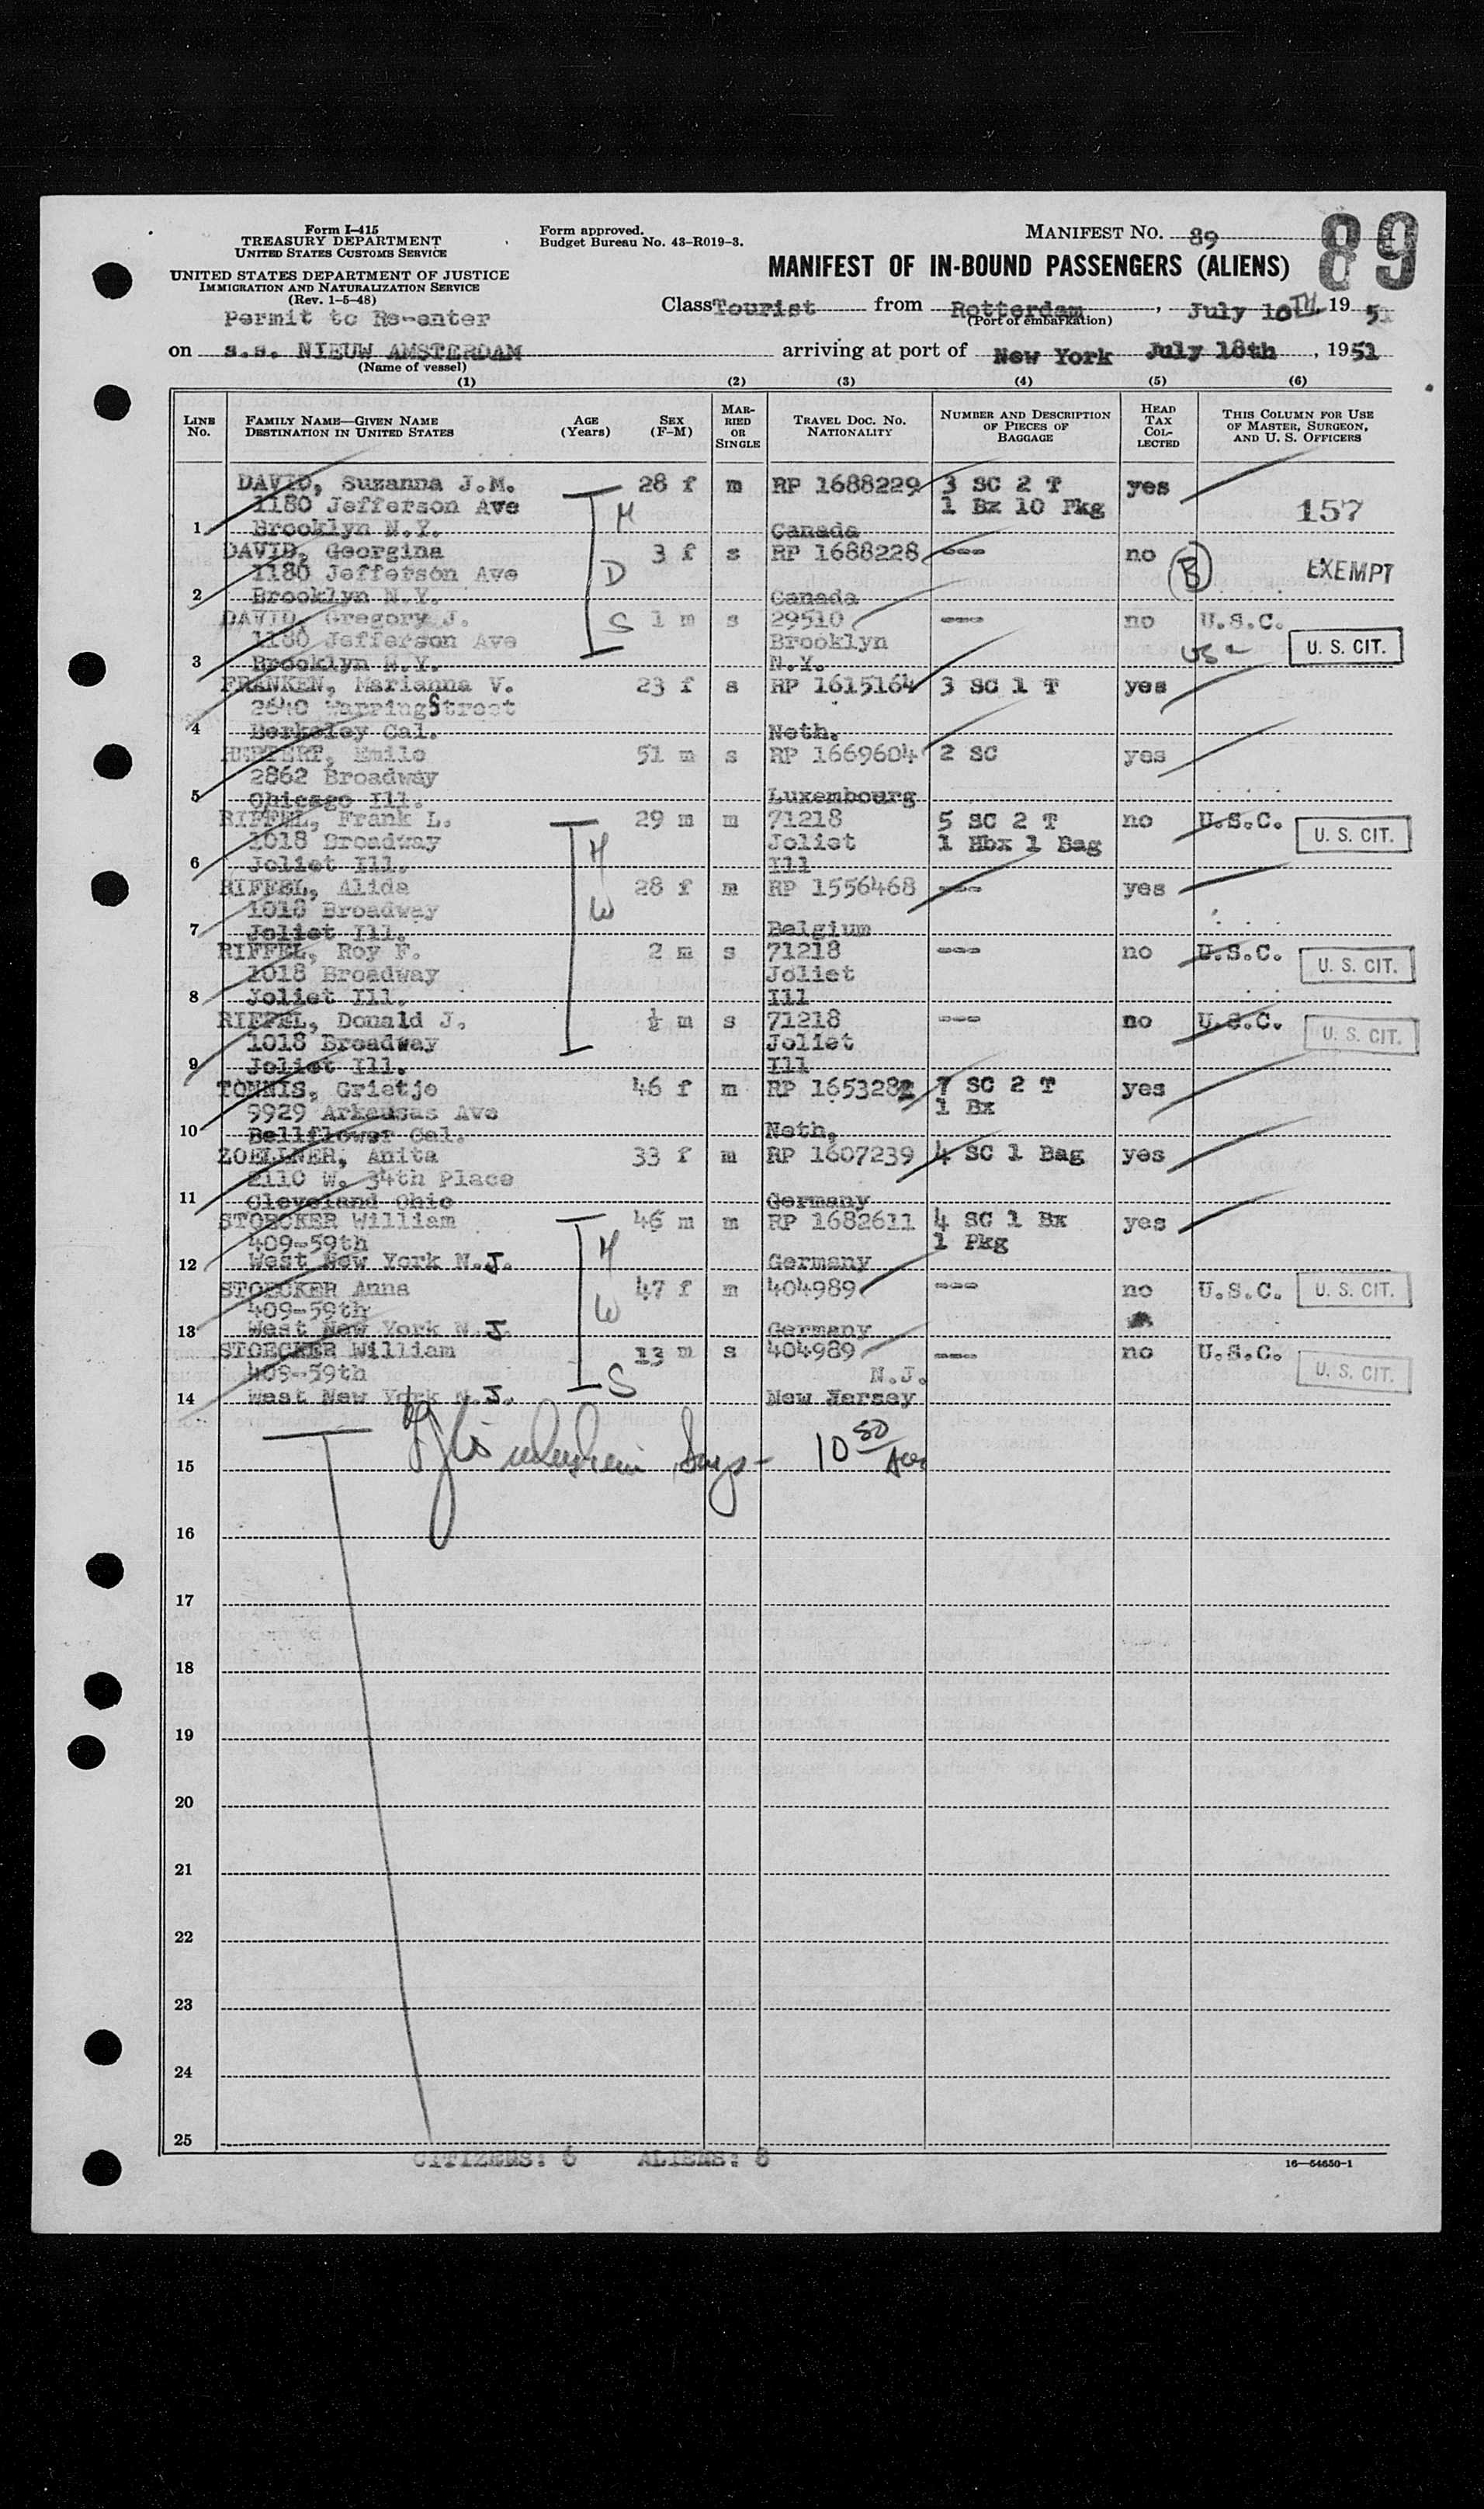 Form I-415
TREASURY DEPARTMENT
UNITED STATES CUSTOMS SERVICE
UNITED STATES DEPARTMENT OF JUSTICE
IMMIGRATION AND NATURALIZATION SERVICE
(Rev. 1-5-48)
Permit to Re-enter
Form approved.
Budget Bureau No. 43-R019-3.
MANIFEST NO. 89
89
MANIFEST OF IN-BOUND PASSENGERS (ALIENS)
Class Tourist from Rotterdam, July 10TH, 1951
(Port of embarkation)
on s.s. NIEUW AMSTERDAM arriving at port of New York July 18th, 1951
(Name of vessel)
(1) (2) (3) (4) (5) (6)
LINE No. FAMILY NAME—GIVEN NAME DESTINATION IN UNITED STATES AGE (Years) SEX (F-M) MARRIED OR SINGLE TRAVEL DOC. NO. NATIONALITY NUMBER AND DESCRIPTION OF PIECES OF BAGGAGE HEAD TAX COLLECTED THIS COLUMN FOR USE OF MASTER, SURGEON, AND U. S. OFFICERS
DAVID, Suzanna J.M. 28 f m RP 1688229 3 SC 2 T yes
1180 Jefferson Ave M 1 Bx 10 Pkg 157
1 Brooklyn N.Y. Canada
DAVID, Georgina 3 f s RP 1688228 --- no B EXEMPT
1180 Jefferson Ave D
2 Brooklyn N.Y. Canada
DAVID, Gregory J. S 1 m s 29510 --- no U.S.C.
1180 Jefferson Ave Brooklyn U. S. CIT.
3 Brooklyn N.Y. N.Y.
FRANKEN, Marianna V. 23 f s RP 1615164 3 SC 1 T yes
2640 Warring Street
4 Berkeley Cal. Neth.
51 m s RP 1669604 2 SC yes
2862 Broadway
5 Chicago Ill. Luxembourg
RIFFEL, Frank L. 29 m m 71218 5 SC 2 T no U.S.C. U. S. CIT.
1018 Broadway H Joliet 1 Hbx 1 Bag
6 Joliet Ill. Ill
RIFFEL, Alida 28 f m RP 1556468 --- yes
1018 Broadway W
7 Joliet Ill. Belgium
RIFFEL, Roy F. 2 m s 71218 --- no U.S.C. U. S. CIT.
1018 Broadway Joliet
8 Joliet Ill. Ill
RIFFEL, Donald J. ½ m s 71218 --- no U.S.C. U. S. CIT.
1018 Broadway Joliet
9 Joliet Ill. Ill
TONNIS, Grietje 46 f m RP 1653282 7 SC 2 T yes
9929 Arkansas Ave 1 Bx
10 Bellflower Cal. Neth.
ZOELLNER, Anita 33 f m RP 1607239 4 SC 1 Bag yes
2110 W. 34th Place
11 Cleveland Ohio Germany
STOECKER William 46 m m RP 1682611 4 SC 1 Bx yes
409-59th H 1 Pkg
12 West New York N.J. Germany
STOECKER Anna 47 f m 404989 --- no U.S.C. U. S. CIT.
409-59th W
13 West New York N.J. Germany
STOECKER William 13 m s 404989 --- no U.S.C. U. S. CIT.
409-59th S N.J.
14 West New York N.J. New Jersey
15 10 50
16
17
18
19
20
21
22
23
24
25
CITIZENS: 6 ALIENS: 8
16—54650-1